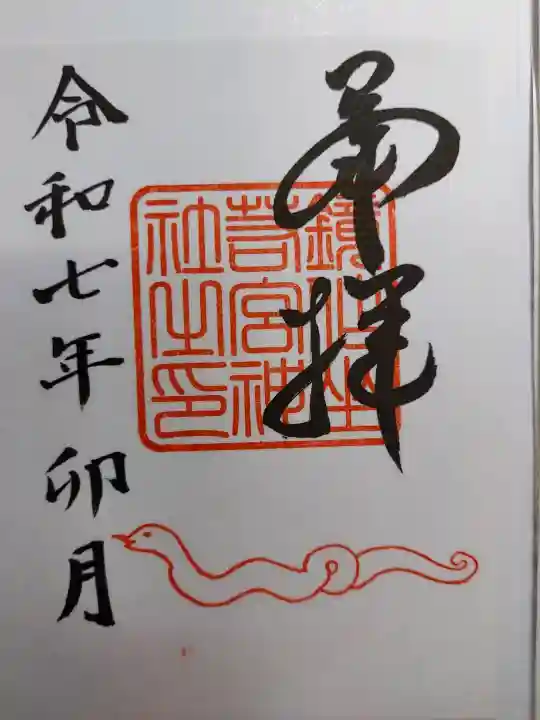 奉拝
鏡作坐
若宮神
社之印
令和七年卯月